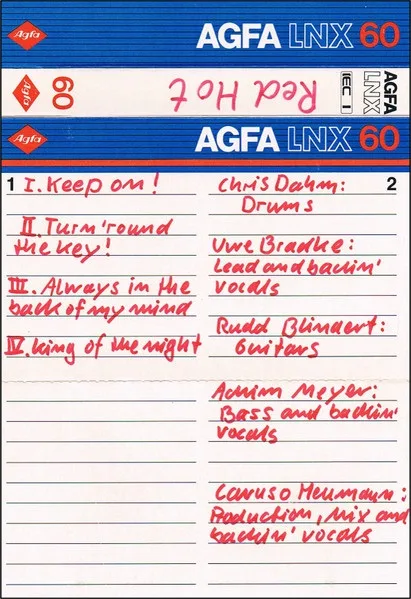 Agfa
AGFA LNX 60
Agfa
60
Red Hot
IEC I
AGFA
LNX
Agfa
AGFA LNX 60
1
I. Keep on!
II. Turn 'round
the key!
III. Always in the
back of my mind
IV. King of the night
2
Chris Dahm:
Drums
Uwe Bradke:
Lead and backin'
vocals
Rudd Blindert:
Guitars
Achim Meyer:
Bass and backin'
vocals
Caruso Heumann:
Production, Mix and
backin' vocals